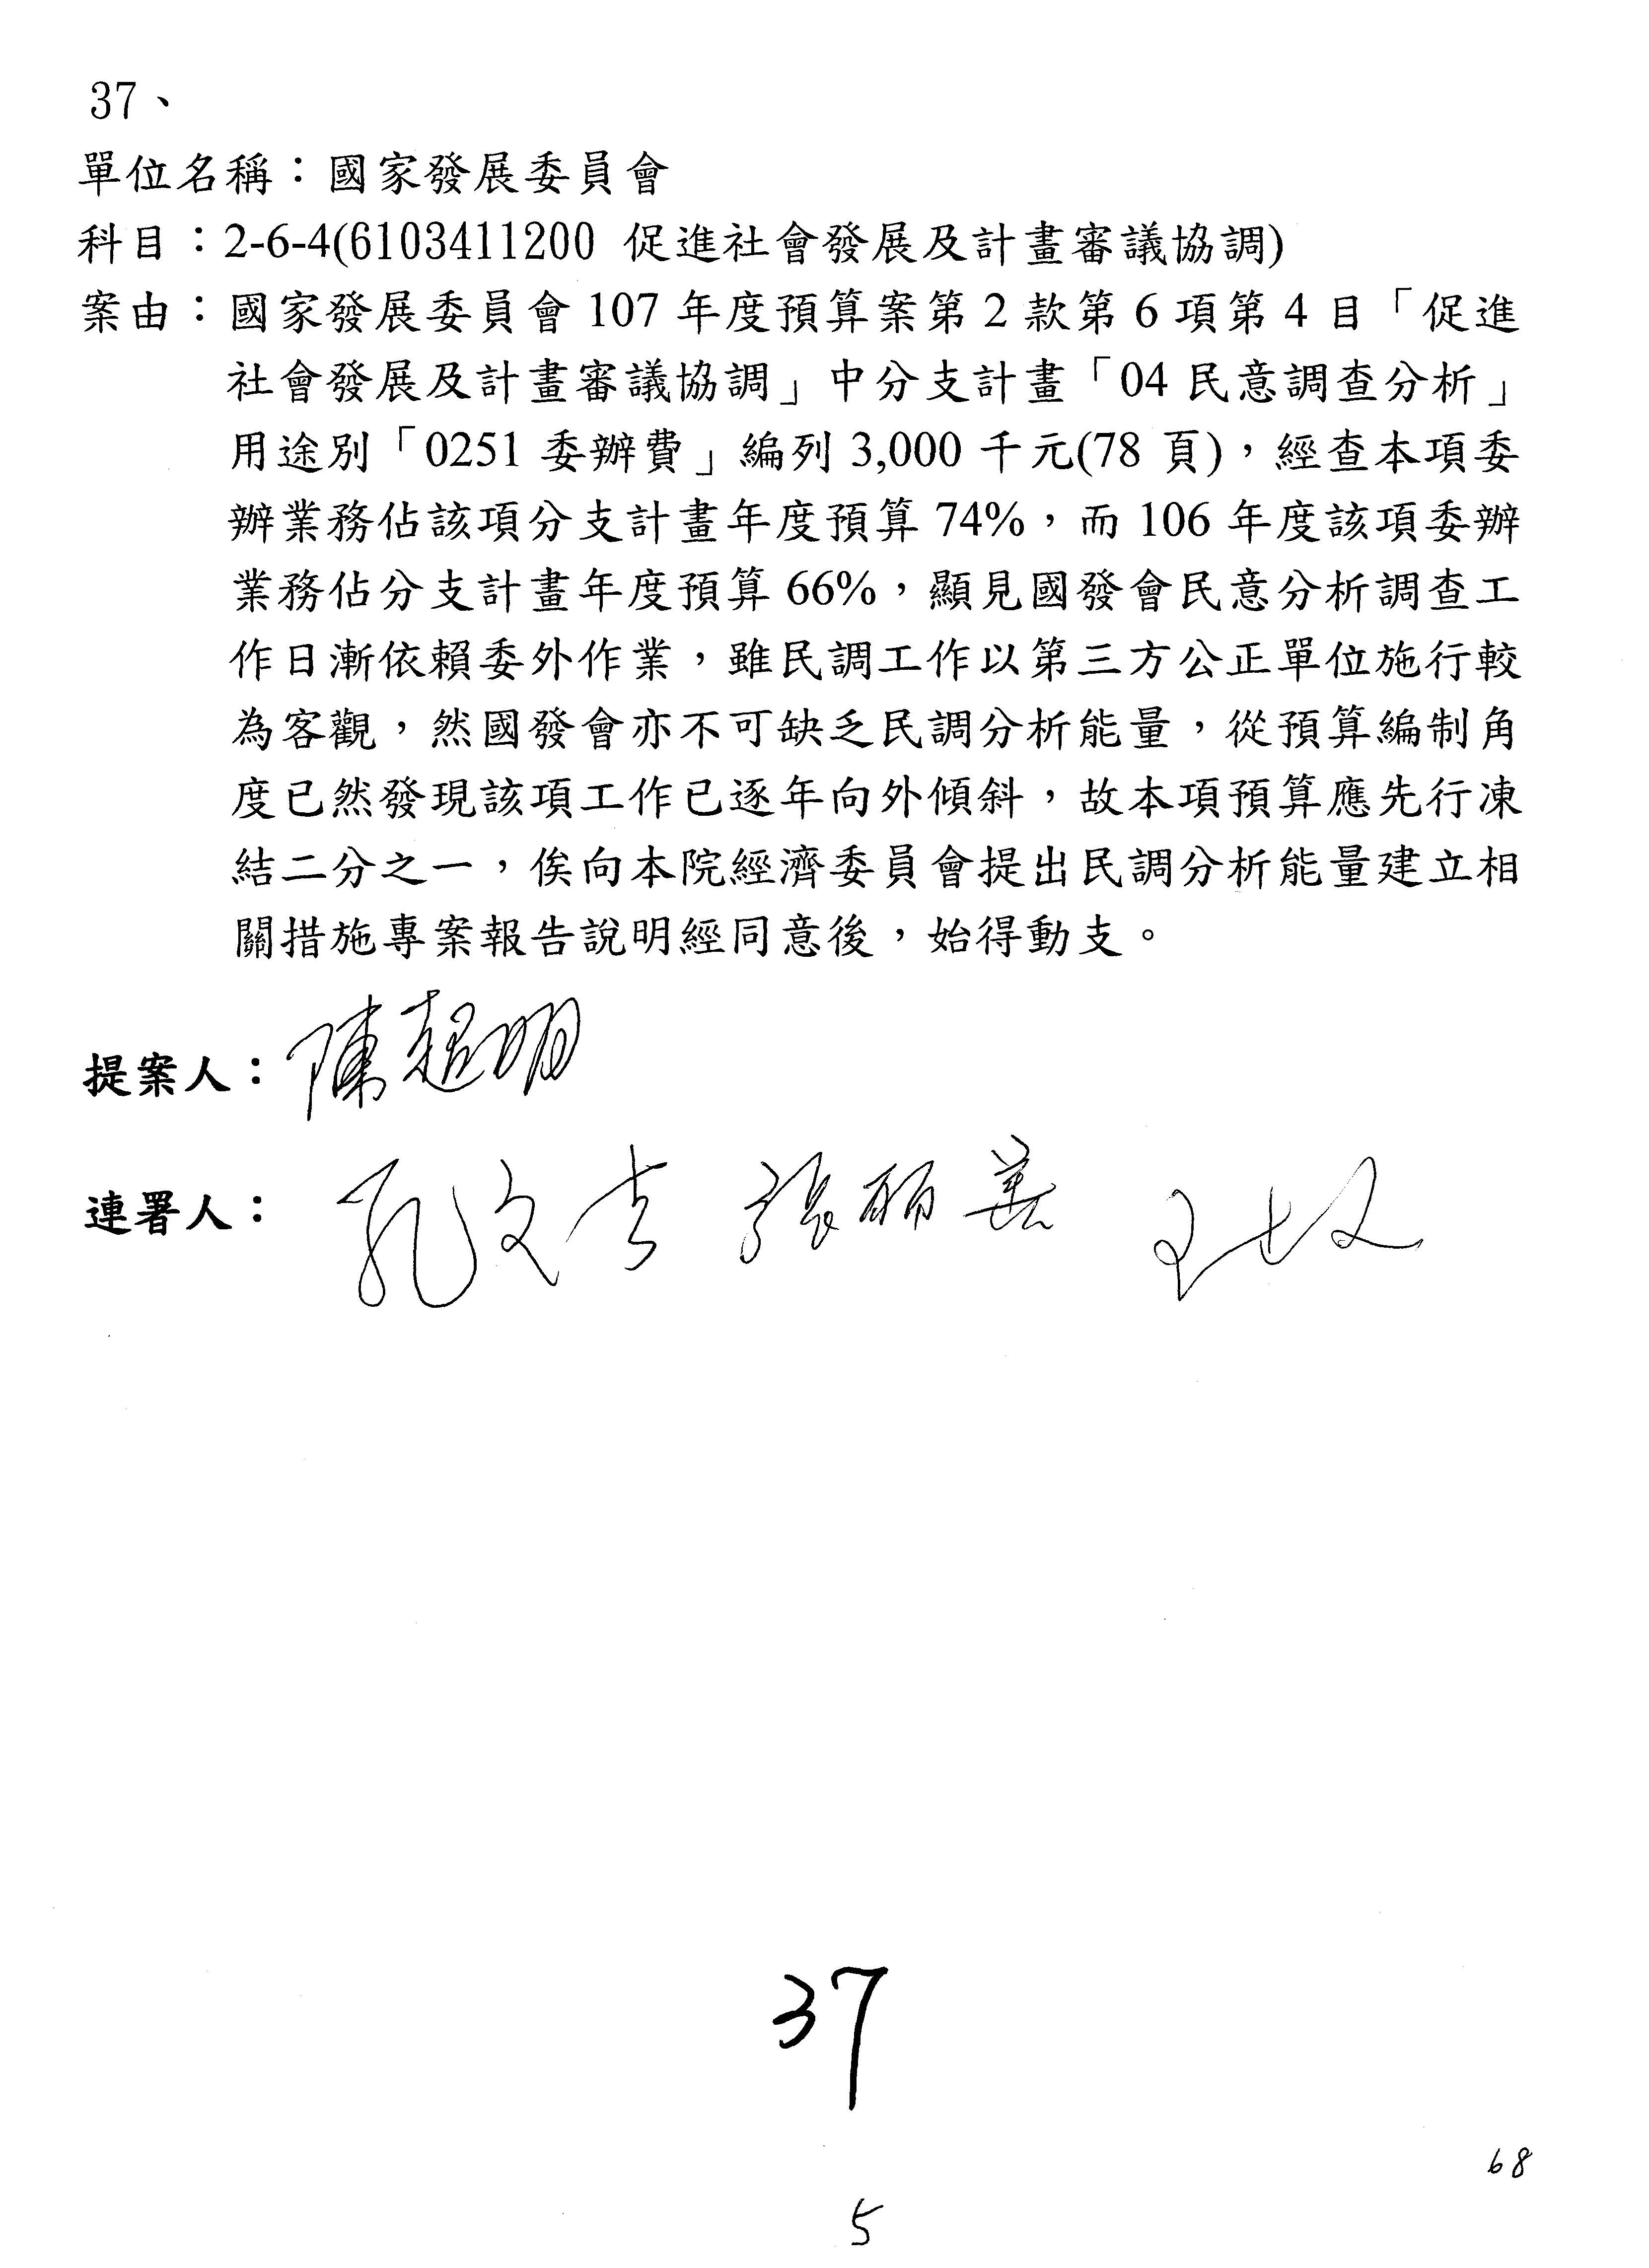 37、
單位名稱：國家發展委員會
科目：2-6-4(6103411200 促進社會發展及計畫審議協調)
案由：國家發展委員會 107 年度預算案第 2 款第 6 項第 4 目「促進
社會發展及計畫審議協調」中分支計畫「04 民意調查分析」
用途別「0251 委辦費」編列 3,000 千元(78 頁)，經查本項委
辦業務佔該項分支計畫年度預算 74%，而 106 年度該項委辦
業務佔分支計畫年度預算 66%，顯見國發會民意分析調查工
作日漸依賴委外作業，雖民調工作以第三方公正單位施行較
為客觀，然國發會亦不可缺乏民調分析能量，從預算編制角
度已然發現該項工作已逐年向外傾斜，故本項預算應先行凍
結二分之一，俟向本院經濟委員會提出民調分析能量建立相
關措施專案報告說明經同意後，始得動支。
提案人：陳超明
連署人：孔文吉 張麗善
37
68
5